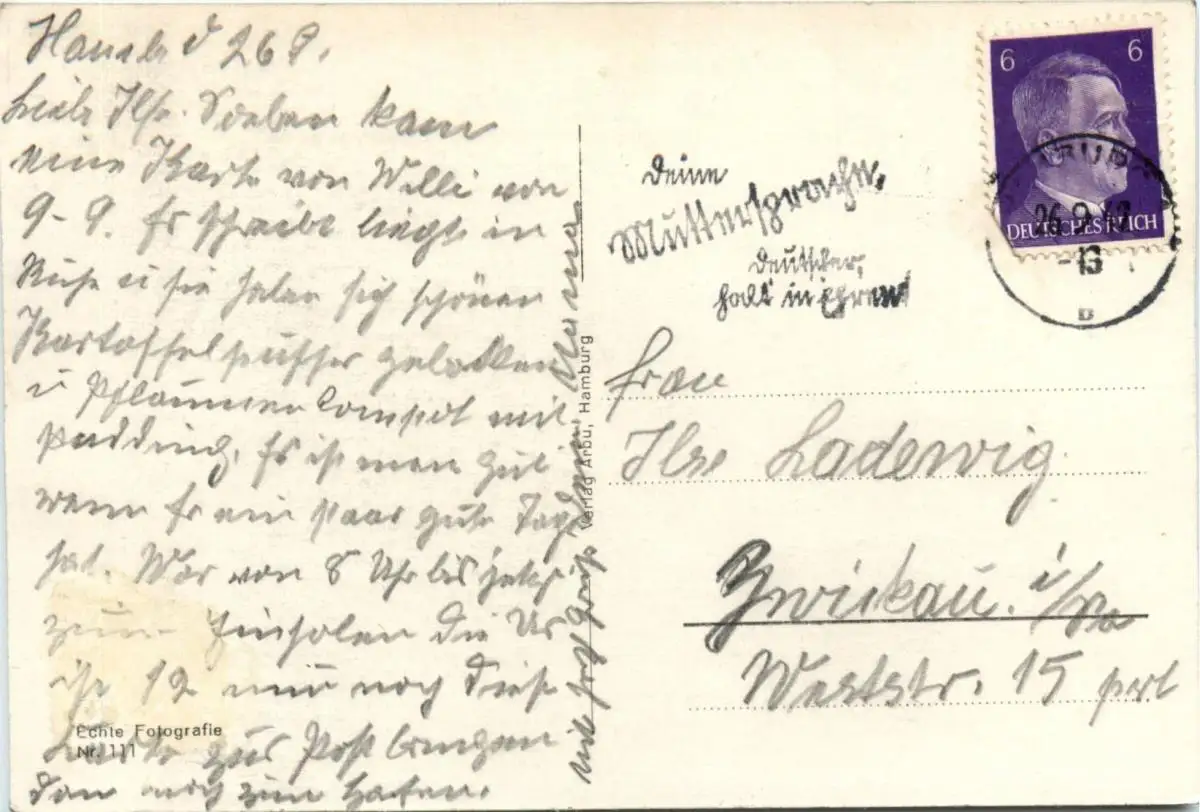 Hamb d 26 9.
Liebe Ilse. Soeben kam
eine Karte von Willi vom
9-9. Er schreibt liegt in
Ruhe u sie haben sich schönen
Kartoffelpuffer gebacken
u Pflaumen Compot mit
Pudding. Es ist man gut
wenn Er ein paar gute Tage
hat. War von 8 Uhr bis jetzt
zum Einholen die Uhr
ist 12 nur noch diese
Karte zur Post bringen
dan noch zum Hafen.
Echte Fotografie
Nr. 111
Verlag Arbu, Hamburg
Deine
Muttersprache,
Deutscher,
halt in Ehren
6
6
DEUTSCHES REICH
26.9.
-13
Frau
Ilse Ladewig.
Zwickau. i/Sa
Weststr. 15 part